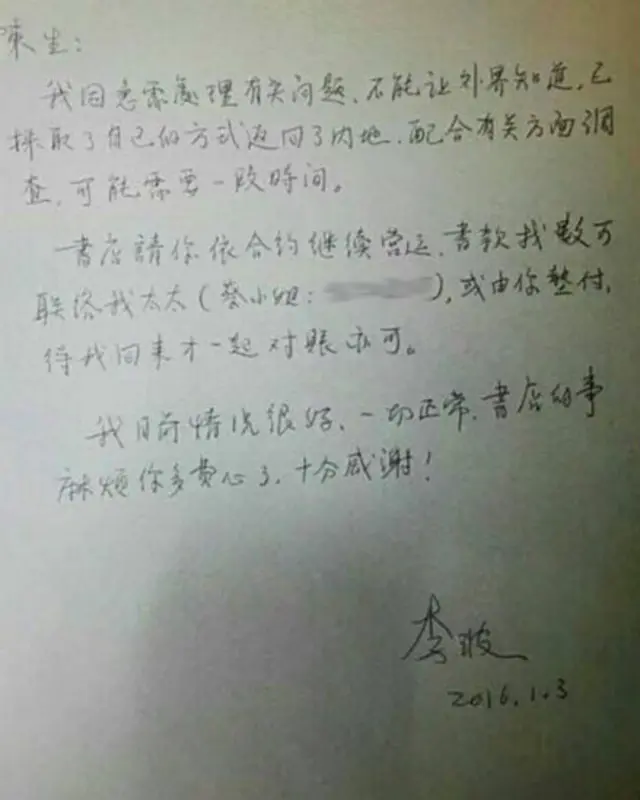 陳生：
我因急需處理有关问题，不能让外界知道，已
採取了自己的方式返回了内地，配合有关方面调
查，可能需要一段時间。
書店請你依合约继续营运，書款找數可
联络我太太（蔡小姐：），或由你垫付，
待我回来才一起对賬亦可。
我目前情况很好，一切正常，書店的事
麻煩你多費心了，十分感谢！
李波
2016.1.3